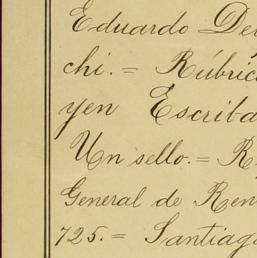 Eduardo De
chi. = Rúbric
yen Escriba
Un sello. = R
General de Ren
725. = Santiag